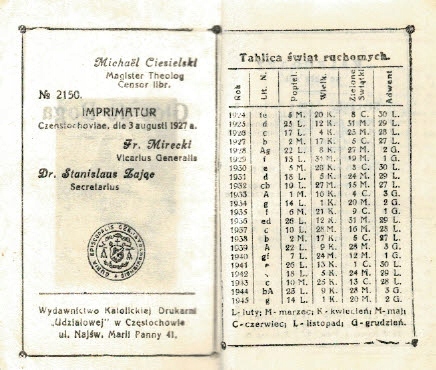 Michaël Ciesielski
Magister Theolog
Censor libr.
№ 2150.
IMPRIMATUR
Czenstochoviae, die 3 augusti 1927 a.
Fr. Mirecki
Vicarius Generalis
Dr. Stanislaus Zając
Secretarius
Wydawnictwo Katolickiej Drukarni
"Udziałowej" w Częstochowie
ul. Najśw. Marii Panny 41.
Tablica świąt ruchomych.
Rok Lit. N. Popiel. Wielk. Zielone Świątki Adwent
1924 fe 5 M. 20 K. 8 C. 30 L.
1925 d 25 L. 12 K. 31 M. 29 L.
1926 c 17 L. 4 K. 23 M. 28 L.
1927 b 2 M. 17 K. 5 C. 27 L.
1928 Ag 22 L. 8 K. 27 M. 2 G.
1929 f 13 L. 31 M. 19 M. 1 G.
1930 e 5 M. 20 K. 8 C. 30 L.
1931 d 18 L. 5 K. 24 M. 29 L.
1932 cb 10 L. 27 M. 15 M. 27 L.
1933 A 1 M. 16 K. 4 C. 3 G.
1934 g 14 L. 1 K. 20 M. 2 G.
1935 f 6 M. 21 K. 9 C. 1 G.
1936 ed 26 L. 12 K. 31 M. 29 L.
1937 c 10 L. 28 M. 16 M. 28 L.
1938 b 2 M. 17 K. 5 C. 27 L.
1939 A 22 L. 9 K. 28 M. 3 G.
1940 gf 7 L. 24 M. 12 M. 1 G.
1941 e 26 L. 13 K. 1 C. 30 L.
1942 18 L. 5 K. 24 M. 29 L.
1943 c 10 M. 25 K. 13 C. 28 L.
1944 bA 23 L. 9 K. 28 M. 3 G.
1945 g 14 L. 1 K. 20 M. 2 G.
L-luty; M-marzec; K-kwiecień; M-maj;
C-czerwiec; L-listopad; G-grudzień.